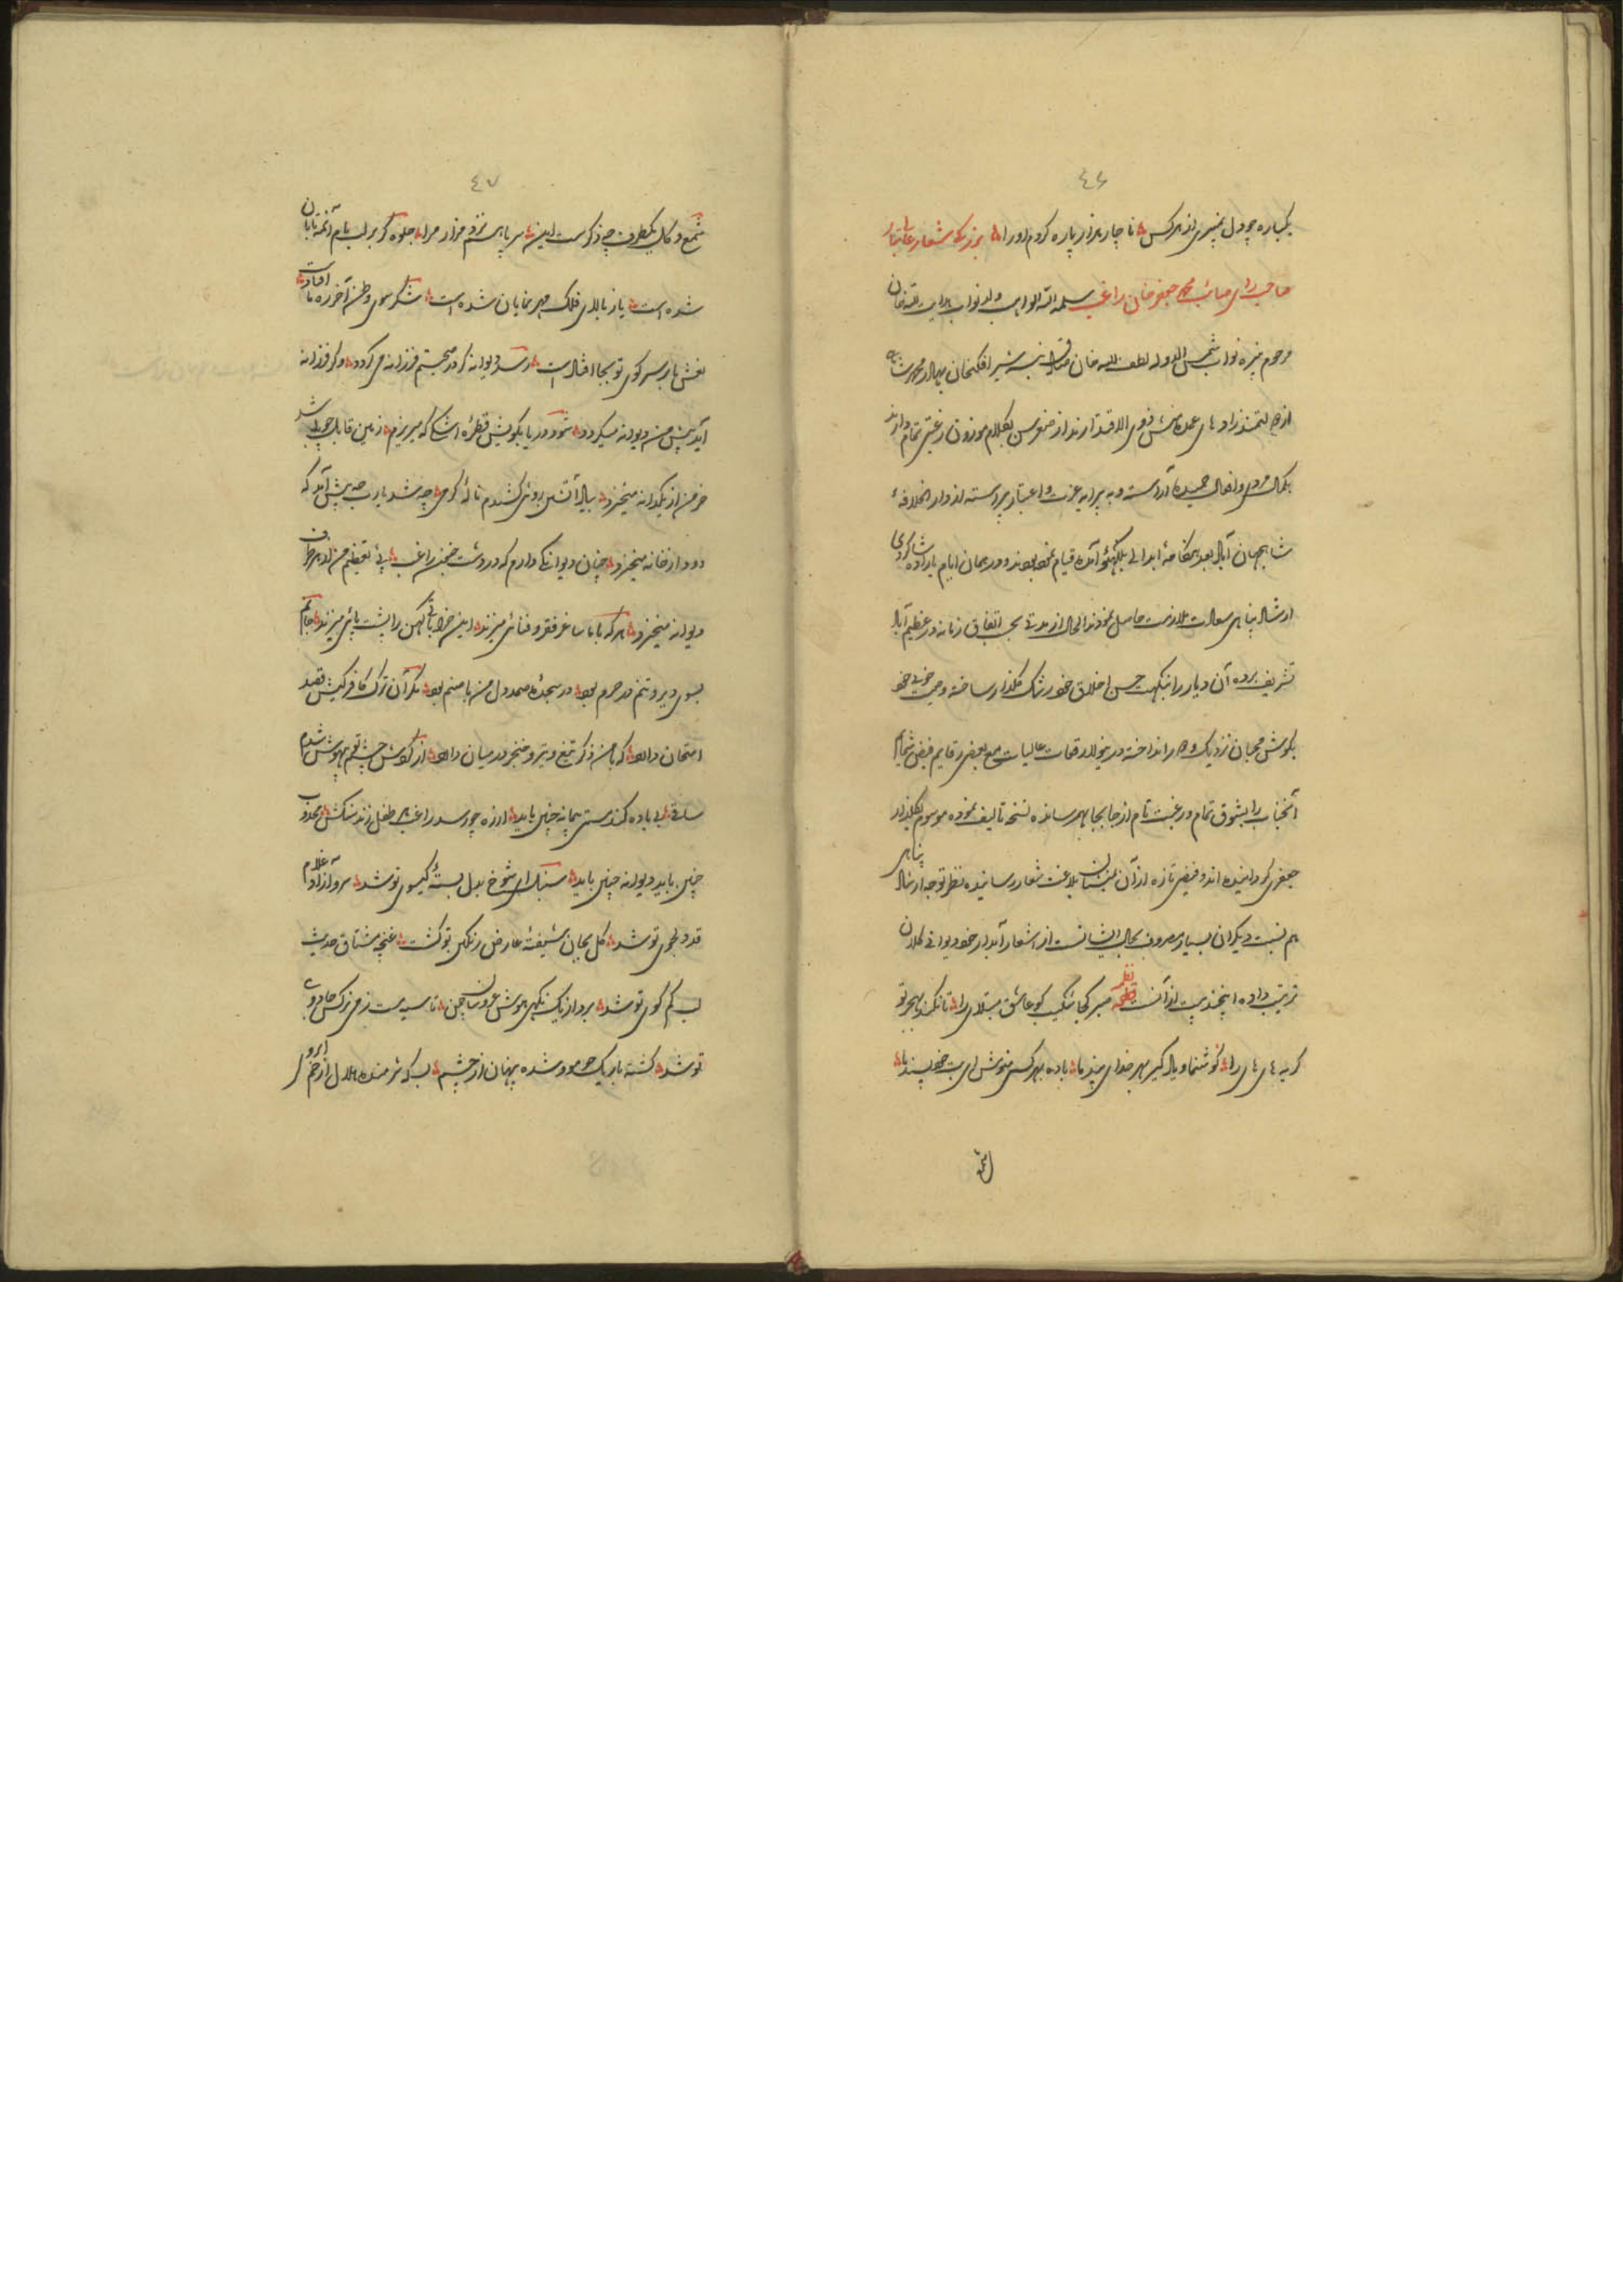 ٤٦
یکباره چو دل نمیبری از هر کس ناچار هزار پاره کردم او را بزرگ شعار
صاحب رای صائب محمد جعفر خان راغب سلمه الله الواهب ولد نواب هدایت الله خان
مرحوم نبیره نواب شمس الدوله لطف الله خان شیر افکنخان بهادر محمد شاه
از دولتمندزادهای ذوی الاقتدارند از صغر سن بکلام موزون رغبتی تمام دارند
بکمال و افعال حمیده آراسته و به پیرایه عزت و اعتبار پیراسته از دار الخلافه
شاهجهان آباد بعد هنگامه ابدالی بلکهنو آمده قیام نموده بودند و در همان ایام باراده شاگردی
ارشاد پناهی سعادت ملازمت حاصل نمودند الحال از مدتی بحسب اتفاق زمانه در عظیم آباد
تشریف برده آن دیار را بنکهت حسن اخلاق خود رشک گلزار ساخته وصیت خوبی خود
بگوش محبان نزدیک و دور انداخته درینولا رقعات عالیات مع بعضی رقایم فیض شمایم
آنجناب را بشوق تمام و رغبت تام از جابجا بهم رسانده نسخه تالیف نموده موسوم بگلزار
جعفری گردانیده اند و فیض تازه از آن بلاغت شعار رسانیده نظر توجه ارشاد پناهی
هم نسبت دیگران بسیار مصروف بحال ایشانست از اشعار آبدار خود دیوانی کلان
ترتیب داده اینچند بیت از آنست نظم صبر کجا شکیب کو عاشق مبتلای را تا نکند بهجر تو
گریه های های را گوشنما و یاد گیر بهر خدای پند ما باده بهر کسی منوش ای بت خود پسند ما
شمع
٤٧
شمع و گل یکطرف چه ذکرست این سر پا هم نزد مزار مرا جلوه گر بر لب بام آنمه تابان
شده است یا ز بالای فلک مهر نمایان شده است شکر سوی وطن آخر ره ما افتادست
نعش ما بر سر کوی تو بجا افتادست رسد دیوانه گر در صحبتم فرزانه می گردد وگر فرزانه
آید پیش من دیوانه میگردد شود دریا بکویش قطره اشکی که میریزم زمین قابل چو باشد
خرمن از یکدانه میخیزد بیاد آتشین روئی کشیدم ناله گرمی چه شد یارب چه پیش آمد که
دود از خانه میخیزد چنان دیوانگی دارم که در دشت جنون راغب پی تعظیم من از هر طرف
دیوانه میخیزد هر که با ما ساغر فقر و فنائی میزند این خراباتی کهن را پشت پائی میزند
بسوی دیر رو تنم در حرم بود در سجده صمد دل من با صنم بود مگر آن ترک کافر کیش قصد
امتحان دارد که با من ذکر تیغ و تیر و خنجر در میان دارد از گردش چشم تو بیهوش شدم
ساقی بی باده کند مستی پیمانه چنین باید از ره چو رسد راغب هر طفل زند سنگش مجذوب
چنین باید دیوانه چنین باید سنبل ای شوخ بدل بسته گیسوی تو شد سرو آزاد غلام
قد دلجوی تو شد گل بجان شیفته عارض رنگین تو گشت غنچه مشتاق حدیث
لب کم گوی تو شد برد از یک نگهی هوش عروسان چمن تا سیه مست ز می نرگس جادوی
تو شد گشته باریک چو مو و شده پنهان از چشم بسکه شرمنده هلال از خم ابروی